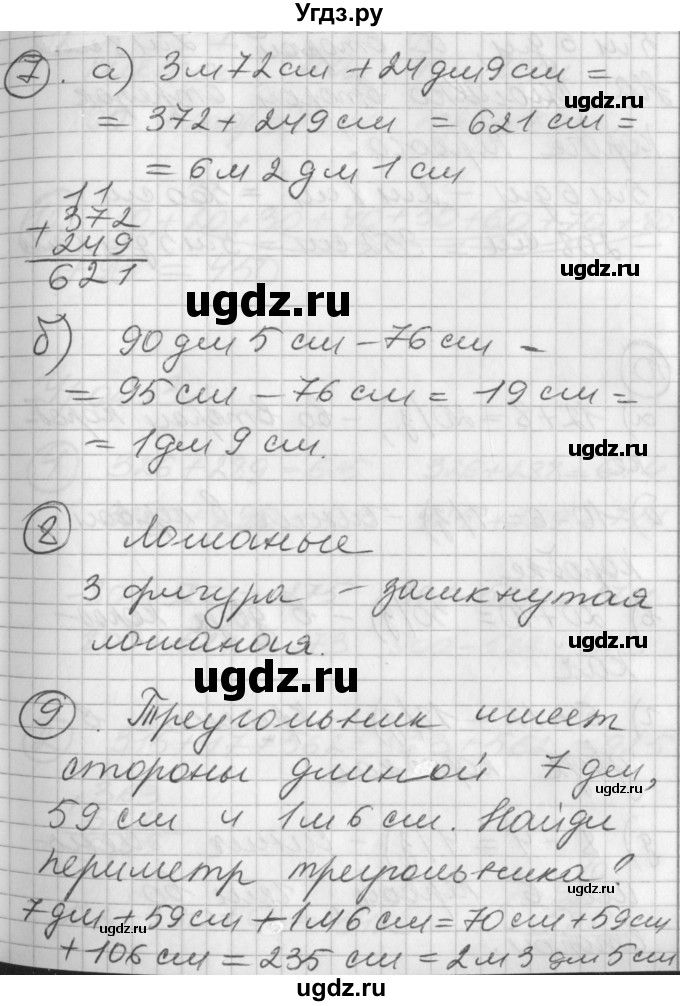 Угдз.ру
7. а) 3м72см + 24дм9см =
ugdz.ru
= 372 + 249см = 621см =
= 6м 2дм 1см
11
+ 372
249
ugdz.ru
621
ugdz.ru
б) 90дм 5см - 76см -
= 95см - 76см = 19см =
= 1дм 9см.
ugdz.ru
8 Ломаные
3 фигура - замкнутая
ломаная.
ugdz.ru
ugdz.ru
9. Треугольник имеет
стороны длиной 7дм,
ugdz.ru
59см и 1м6см. Найди
периметр треугольника?
ugdz.ru
7дм + 59см + 1м6см = 70см + 59см
+ 106см = 235см = 2м3дм5см
ugdz.ru
ugdz.ru